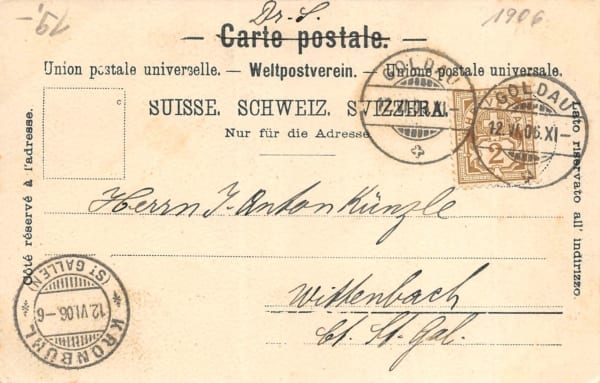 15,-
Dr. S.
1906
Carte postale.
Union postale universelle. — Weltpostverein. — Unione postale universale.
SUISSE. SCHWEIZ. SVIZZERA.
Nur für die Adresse
Côté réservé à l'adresse.
Lato riservato all' indirizzo.
GOLDAU
12.VI.06.XI-
GOLDAU
12.VI.06.XI-
2
Herrn J. Anton Künzle
Wittenbach
Ct. St. Gal.
KRONBÜHL
(ST. GALLEN)
12.VI.06.-6